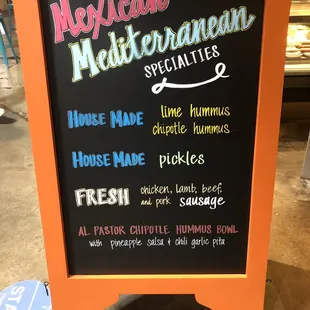 Mexican
Mediterranean
SPECIALTIES
HOUSE MADE lime hummus
chipotle hummus
HOUSE MADE pickles
FRESH chicken, lamb, beef,
and pork sausage
AL PASTOR CHIPOTLE HUMMUS BOWL
with pineapple salsa & chili garlic pita
STA